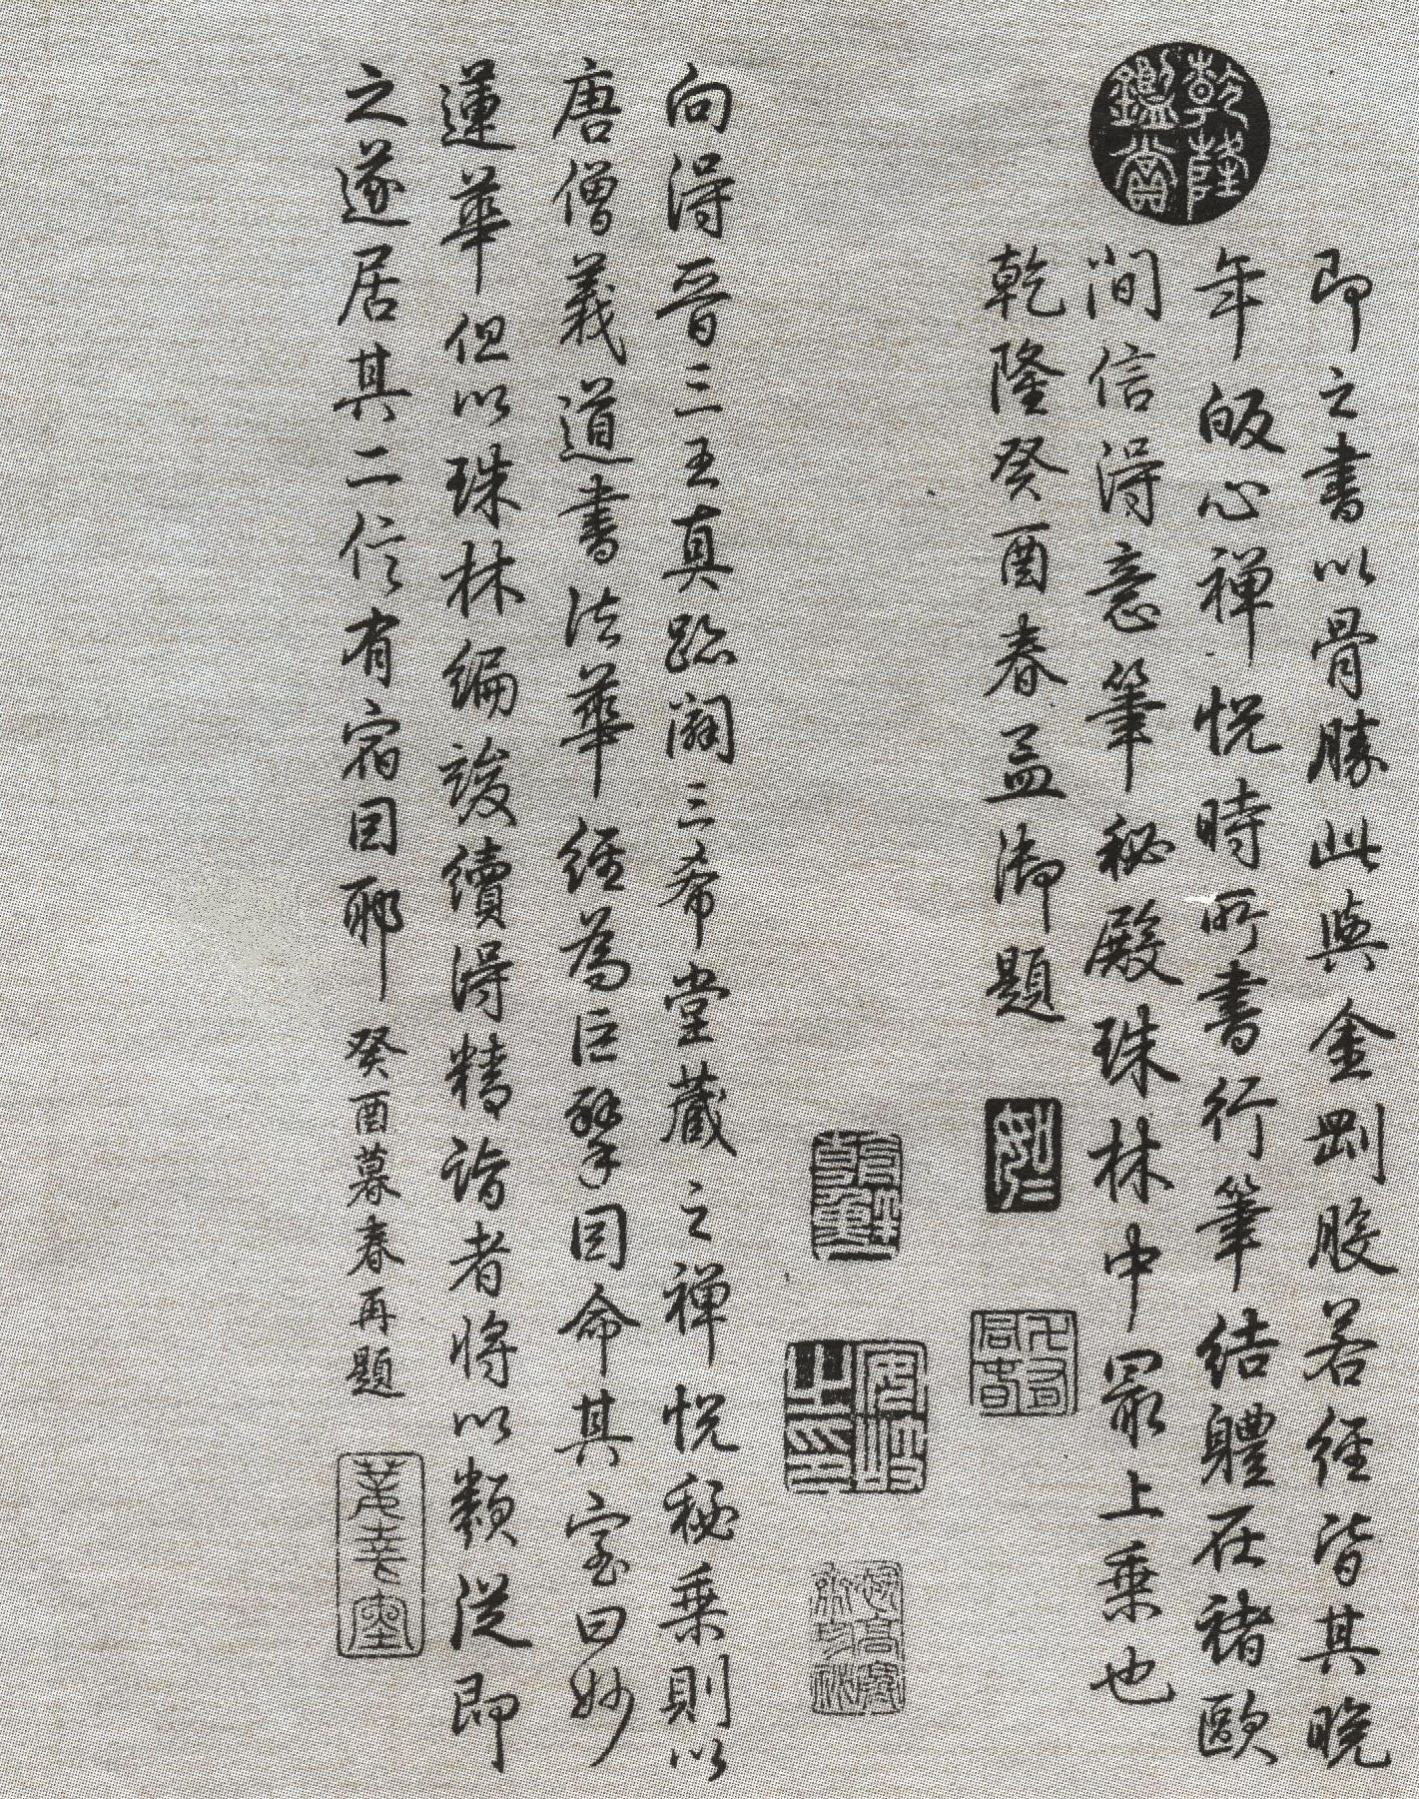 乾隆鑑賞
即之書以骨勝此與金剛般若經皆其晚
年皈心禪悅時所書行筆結體在褚歐
間信得意筆秘殿珠林中最上乘也
乾隆癸酉春孟御題
向得晉三王真跡闢三希堂藏之禪悅秘乘則以
唐僧義道書法華經為巨擘因命其室曰妙
蓮華但以珠林編竣續得精詣者將以類從即
之遂居其二信有宿因耶 癸酉暮春再題